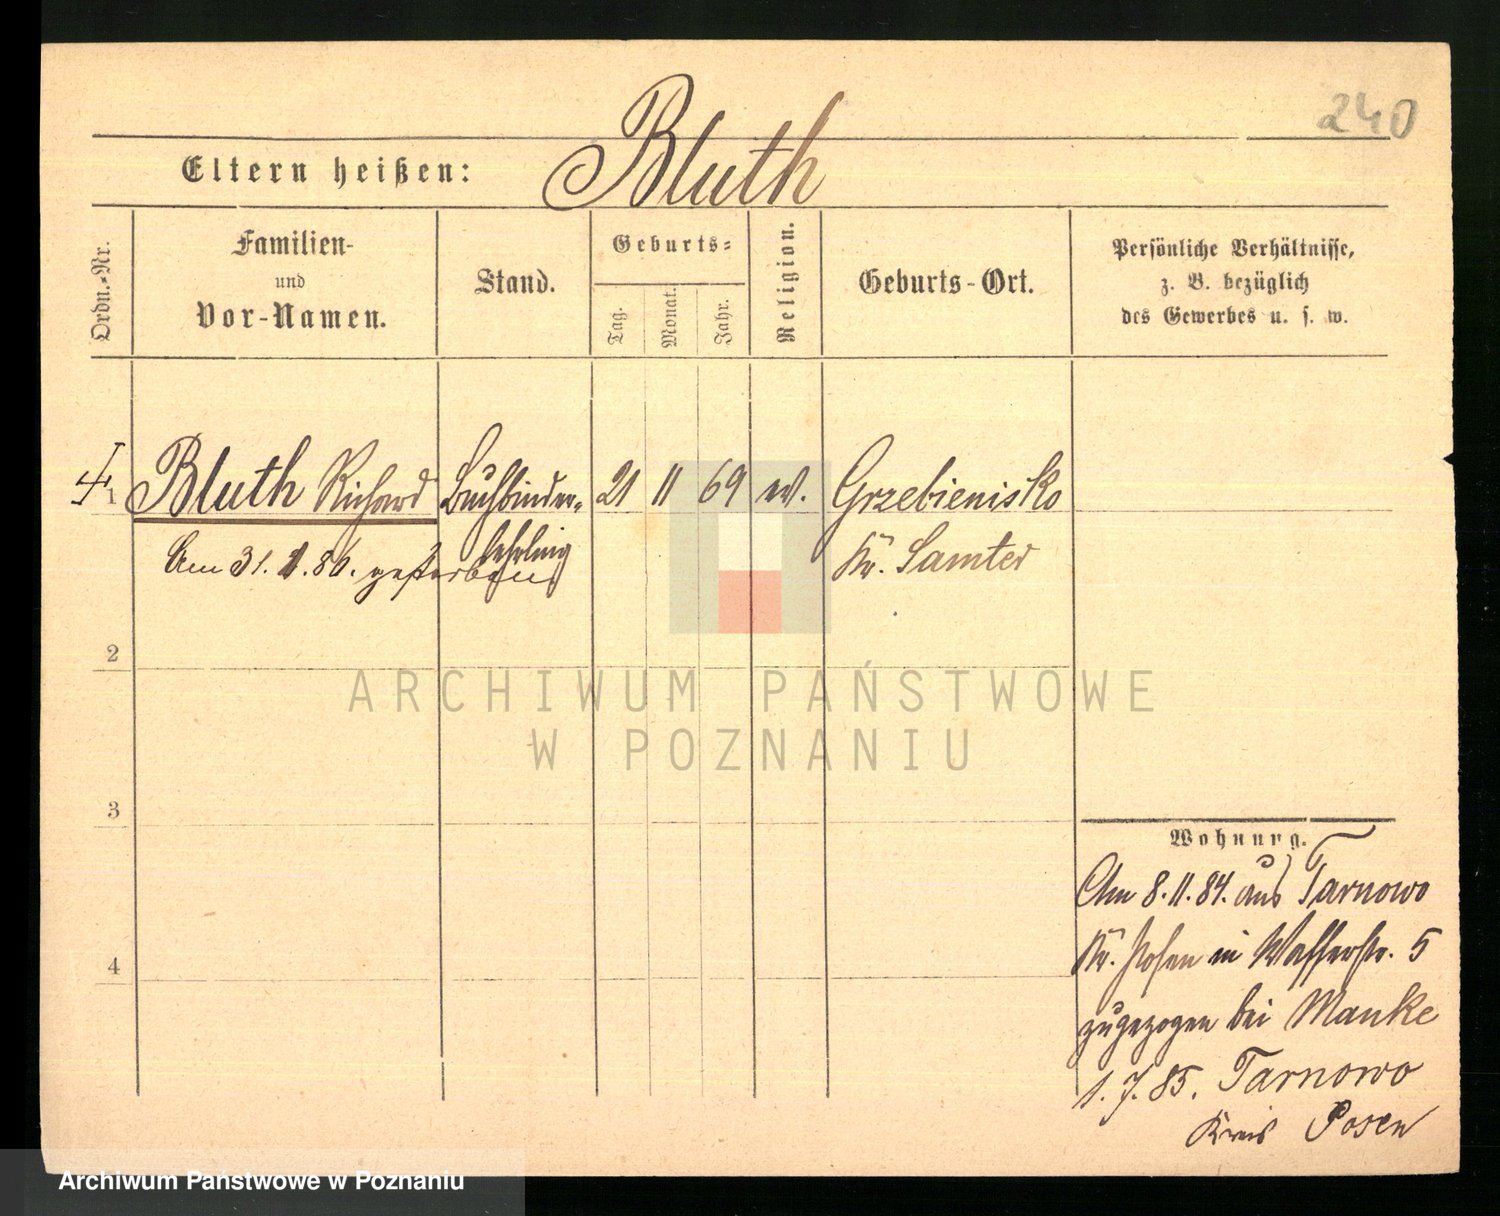 240
Eltern heißen: Bluth
Ordn.-Nr.
Familien-
und
Vor-Namen.
Stand.
Geburts=
Tag.
Monat.
Jahr.
Religion.
Geburts-Ort.
Persönliche Verhältnisse,
z. B. bezüglich
des Gewerbes u. s. w.
1 Bluth Richard Buchbinder- 21 11 69 ev. Grzebienisko
lehrling Kr. Samter
Am 31. 1. 86. gestorben
2
3
4
Wohnung.
Am 8.11.84. aus Tarnowo
Kr. Posen in Wasserstr. 5
zugezogen bei Manke
1. 7. 85. Tarnowo
Kreis Posen
ARCHIWUM PAŃSTWOWE
W POZNANIU
Archiwum Państwowe w Poznaniu